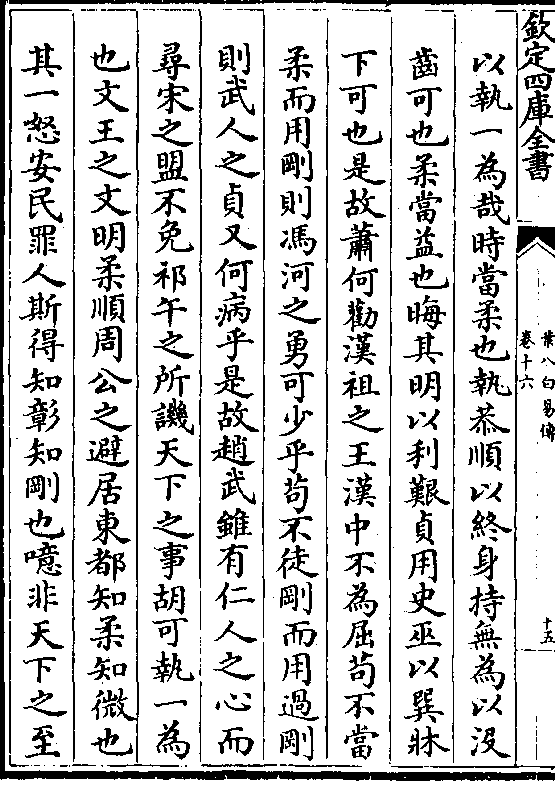 欽定四庫全書
葉八白易傳
卷十六
十五
以執一為哉時當柔也執恭順以終身持無為以没
齒可也柔當益也晦其明以利艱貞用史巫以巽牀
下可也是故蕭何勸漢祖之王漢中不為屈苟不當
柔而用剛則馮河之勇可少乎苟不徒剛而用過剛
則武人之貞又何病乎是故趙武雖有仁人之心而
尋宋之盟不免祁午之所譏天下之事胡可執一為
也文王之文明柔順周公之避居東都知柔知微也
其一怒安民罪人斯得知彰知剛也噫非天下之至